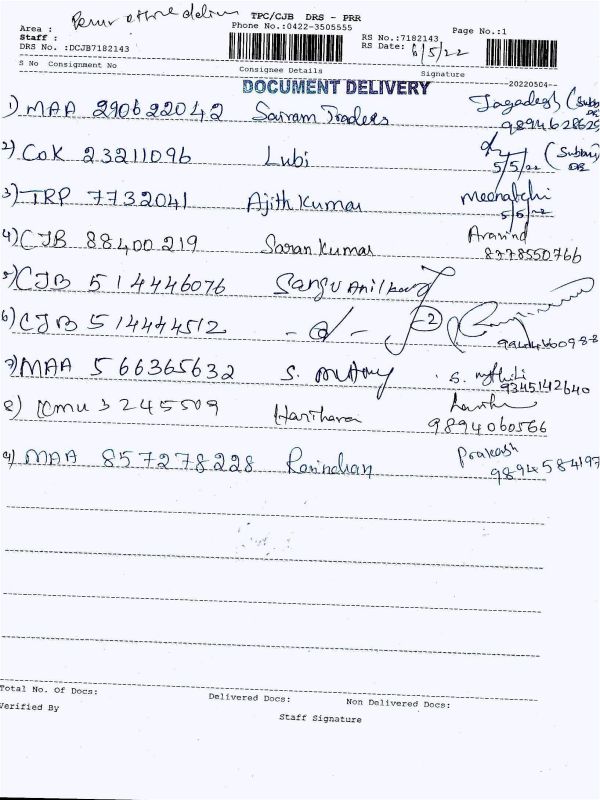 TPC/CJB DRS - PRR
Area :
Phone No.:0422-3505555
Page No.:1
Staff :
RS No.:7182143
DRS No. :DCJB7182143
RS Date: 6/5/22
S No Consignment No
Consignee Details
Signature
--20220504--
DOCUMENT DELIVERY
1) MAA 290622042 Sairam Traders Jagadesh
9894628625
2) COK 23211096 Lubi 5/5/22
3) TRP 7732041 Ajith Kumar Meenatchi
5/5/22
4) CJB 88400219 Saran Kumar Aravind
8778550766
5) CJB 514446076
6) CJB 514444512 - d - 2
7) MAA 566365632 S.
9345142640
8) 3245509 Hariharan
9894060566
9) MAA 857278228 Ravindran Prakash
9894584197
Total No. Of Docs:
Delivered Docs:
Non Delivered Docs:
Verified By
Staff Signature